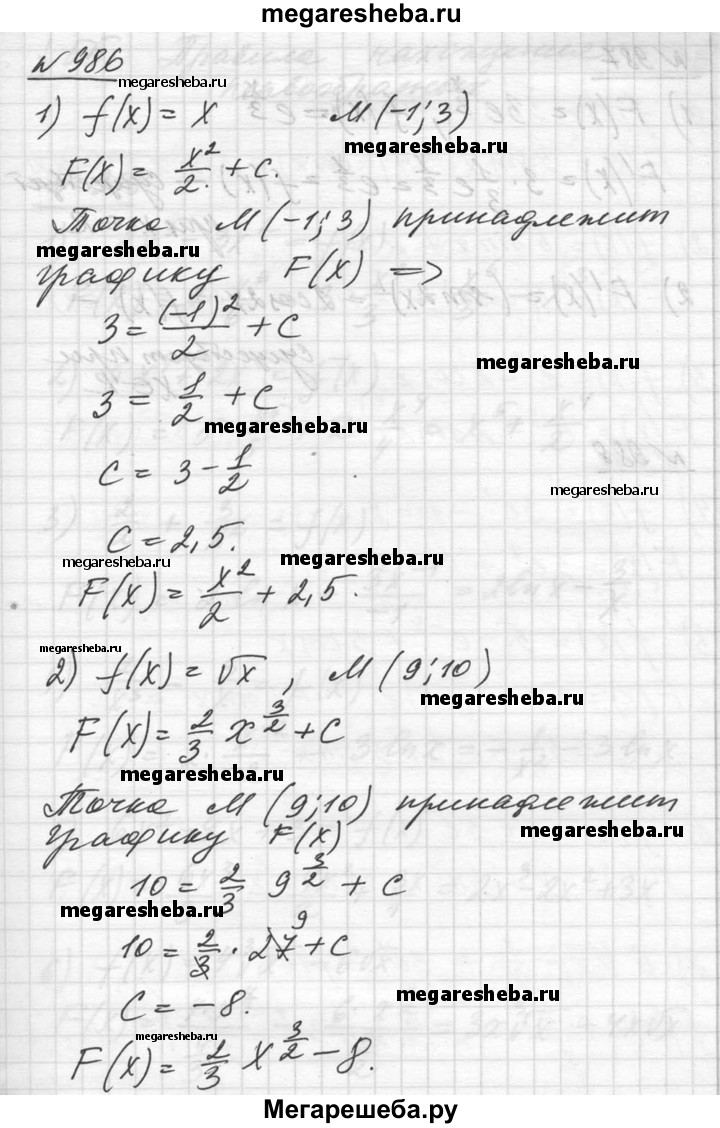 megaresheba.ru
№ 986
megaresheba.ru
1) f(x) = x M(-1; 3)
megaresheba.ru
F(x) = x²/2 + C.
Точка M(-1; 3) принадлежит
megaresheba.ru
графику F(x) =>
3 = (-1)²/2 + C
megaresheba.ru
3 = 1/2 + C
megaresheba.ru
C = 3 - 1/2
megaresheba.ru
C = 2,5.
megaresheba.ru
megaresheba.ru
F(x) = x²/2 + 2,5.
megaresheba.ru
2) f(x) = √x, M(9; 10)
megaresheba.ru
F(x) = 2/3 x^(3/2) + C
megaresheba.ru
Точка M(9; 10) принадлежит
графику F(x)
megaresheba.ru
10 = 2/3 9^(3/2) + C
megaresheba.ru
9
10 = 2/3 · 27 + C
C = -8.
megaresheba.ru
megaresheba.ru
F(x) = 2/3 x^(3/2) - 8.
Мегарешеба.ру